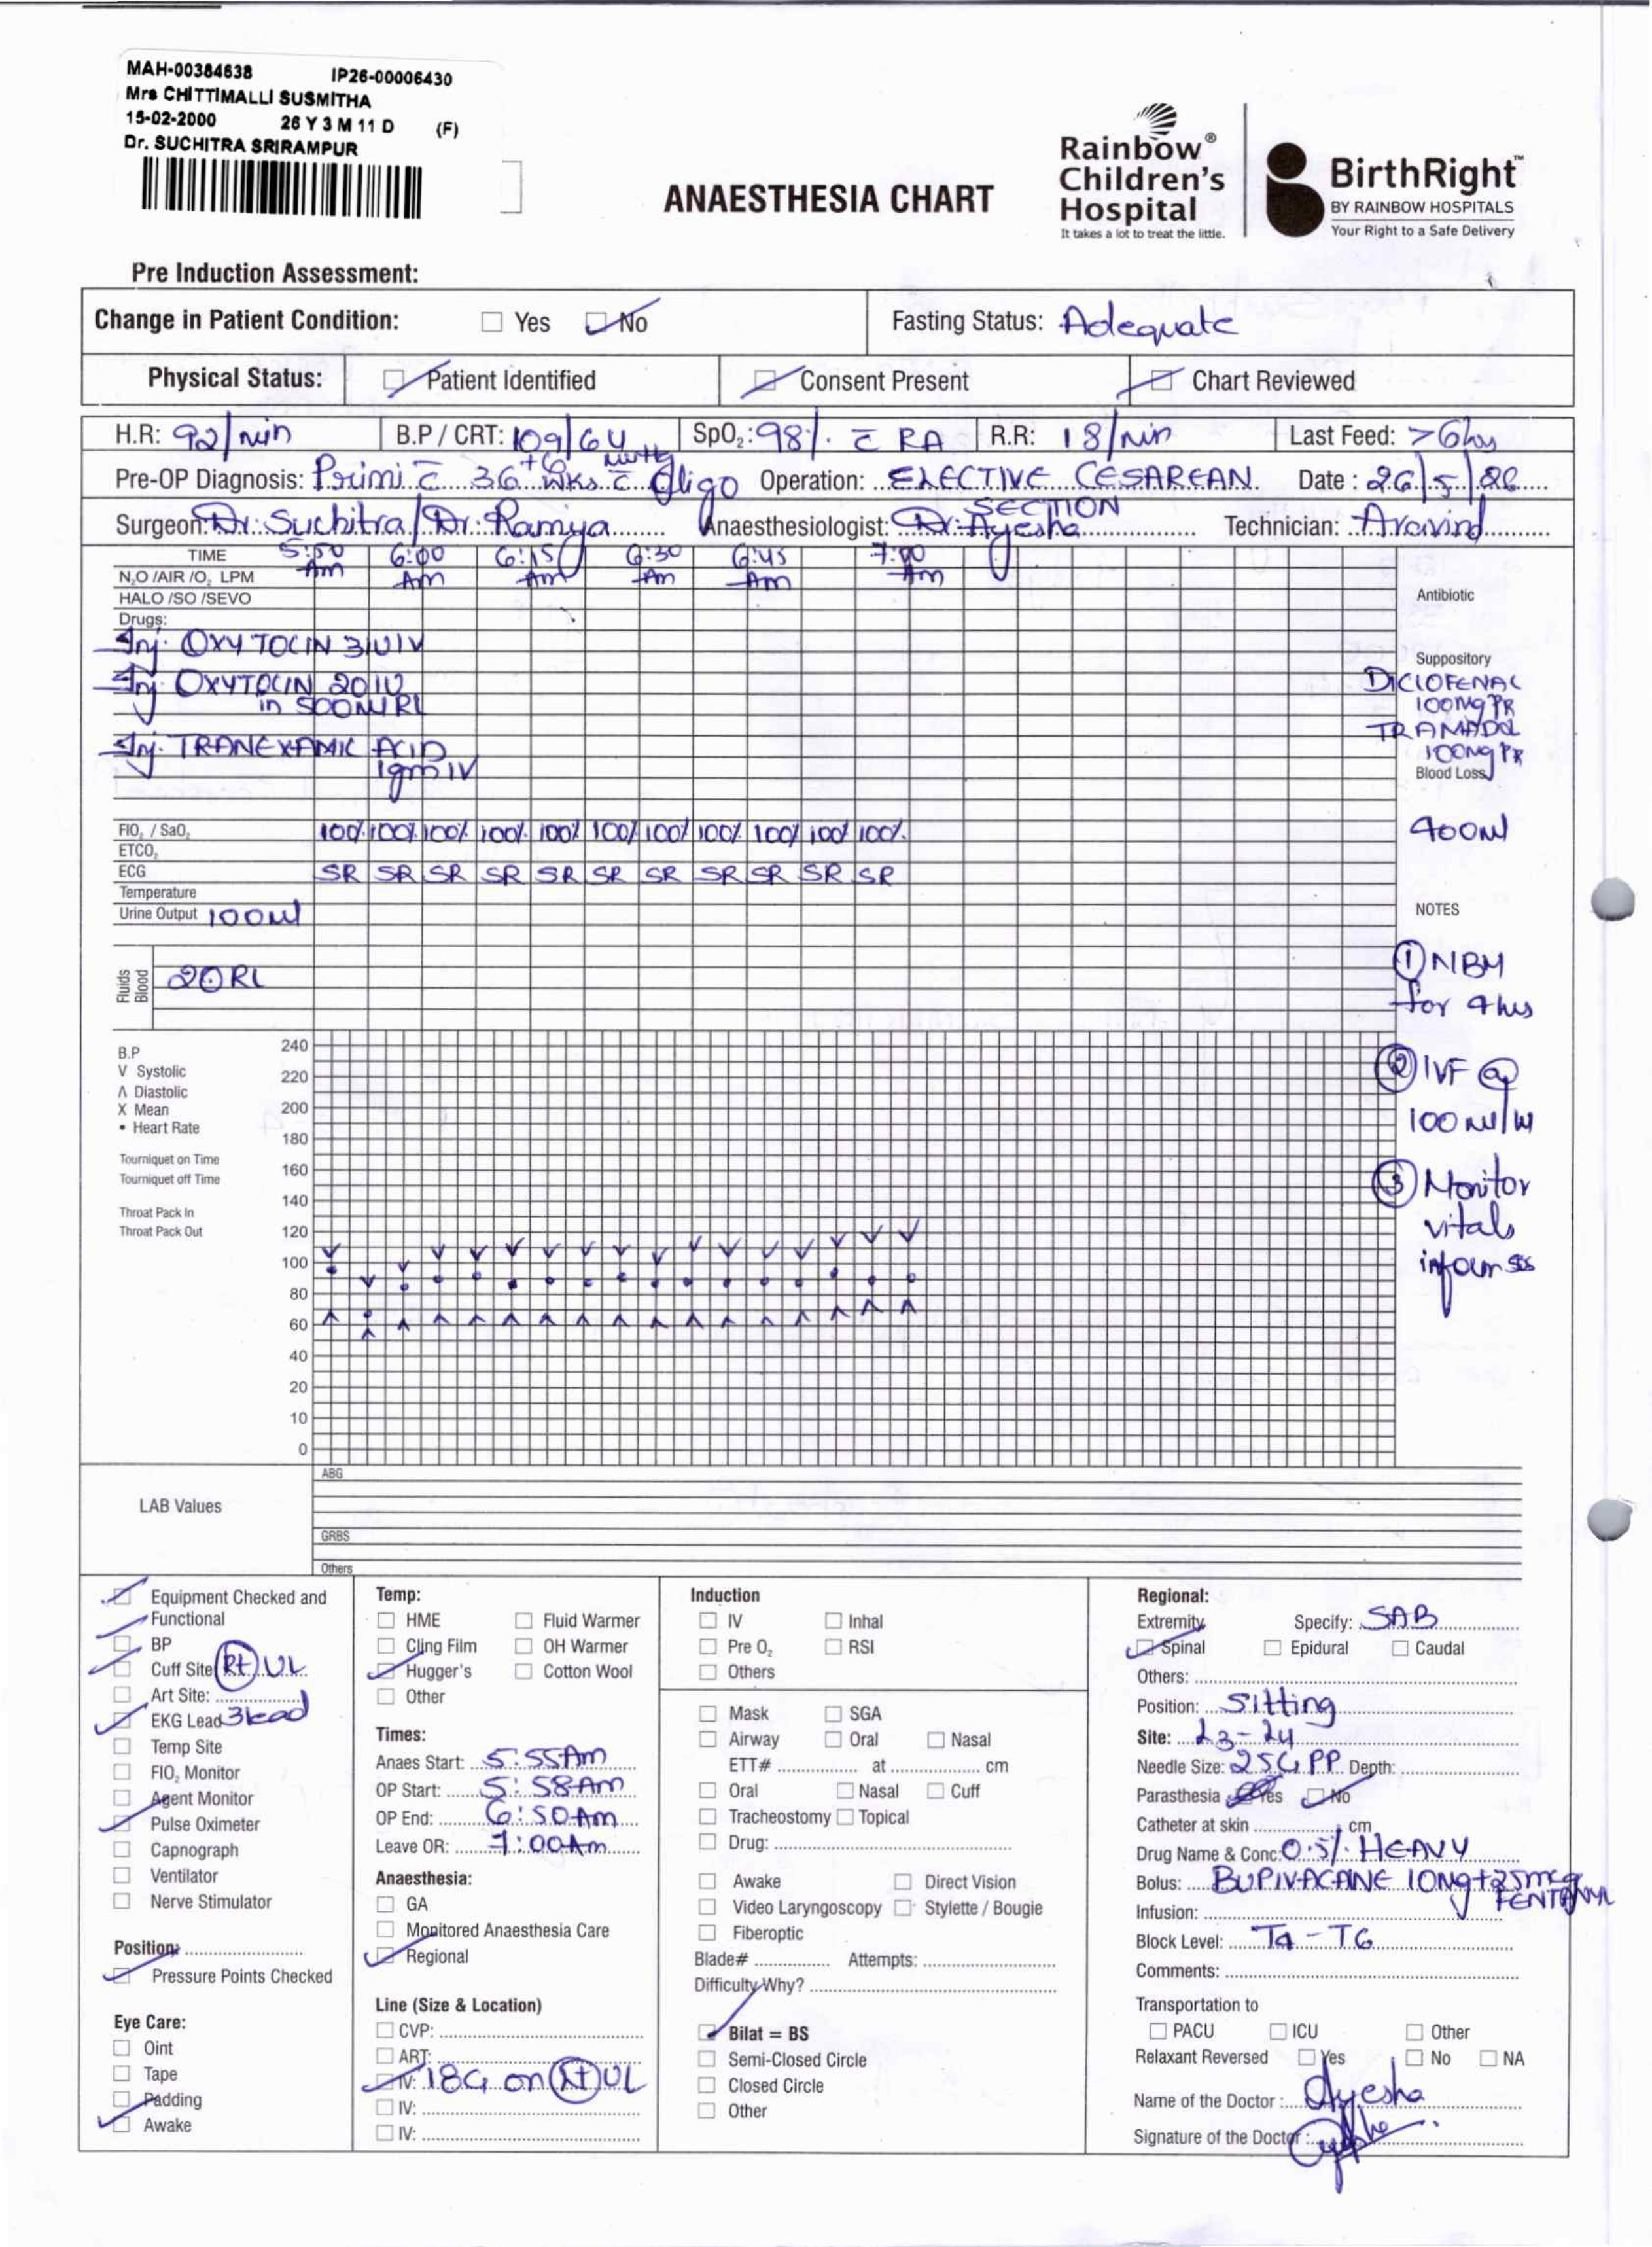 MAH-00384638 IP26-00006430
Mrs CHITTIMALLI SUSMITHA
15-02-2000 26 Y 3 M 11 D (F)
Dr. SUCHITRA SRIRAMPUR
ANAESTHESIA CHART
Rainbow® Children's Hospital
It takes a lot to treat the little.
BirthRight™
BY RAINBOW HOSPITALS
Your Right to a Safe Delivery
Pre Induction Assessment:
Change in Patient Condition: Yes No Fasting Status: Adequate
Physical Status: Patient Identified Consent Present Chart Reviewed
H.R: 92/min B.P / CRT: 109/64 mmHg SpO₂: 98% c̄ RA R.R: 18/min Last Feed: >6hrs
Pre-OP Diagnosis: Primi c̄ 36 wks c̄ Oligo Operation: ELECTIVE CESAREAN SECTION Date: 26/5/26
Surgeon: Dr. Suchitra/Dr. Ramya Anaesthesiologist: Dr. Ayesha Technician: Aravind
TIME 5:50 Am 6:00 Am 6:15 Am 6:30 Am 6:45 Am 7:00 Am
N₂O /AIR /O₂ LPM
HALO /SO /SEVO
Antibiotic
Drugs:
Inj. OXYTOCIN 3IU IV
Inj OXYTOCIN 20IU
in 500ml RL
Inj. TRANEXAMIC ACID
1gm IV
Suppository
DICLOFENAC
100mg PR
TRAMADOL
100mg PR
Blood Loss
400ml
FIO₂ / SaO₂ 100% 100% 100% 100% 100% 100% 100% 100% 100% 100% 100%
ETCO₂
ECG SR SR SR SR SR SR SR SR SR SR SR
Temperature
Urine Output 100ml
NOTES
Fluids Blood RL
① NBM
for 4hrs
② IVF @
100 ml/hr
③ Monitor
vitals
inform SOS
B.P
V Systolic
Λ Diastolic
X Mean
• Heart Rate
Tourniquet on Time
Tourniquet off Time
Throat Pack In
Throat Pack Out
240
220
200
180
160
140
120
100
80
60
40
20
10
0
LAB Values
ABG
GRBS
Others
Equipment Checked and Functional
BP
Cuff Site (Rt) UL
Art Site:
EKG Lead 3 lead
Temp Site
FIO₂ Monitor
Agent Monitor
Pulse Oximeter
Capnograph
Ventilator
Nerve Stimulator
Position:
Pressure Points Checked
Eye Care:
Oint
Tape
Padding
Awake
Temp:
HME Fluid Warmer
Cling Film OH Warmer
Hugger's Cotton Wool
Other
Times:
Anaes Start: 5:55 Am
OP Start: 5:58 Am
OP End: 6:50 Am
Leave OR: 7:00 Am
Anaesthesia:
GA
Monitored Anaesthesia Care
Regional
Line (Size & Location)
CVP:
ART:
IV: 18G on UL
IV:
IV:
Induction
IV Inhal
Pre O₂ RSI
Others
Mask SGA
Airway Oral Nasal
ETT# at cm
Oral Nasal Cuff
Tracheostomy Topical
Drug:
Awake Direct Vision
Video Laryngoscopy Stylette / Bougie
Fiberoptic
Blade# Attempts:
Difficulty Why?
Bilat = BS
Semi-Closed Circle
Closed Circle
Other
Regional:
Extremity Specify: SAB
Spinal Epidural Caudal
Others:
Position: Sitting
Site: L3-L4
Needle Size: 25G PP Depth:
Parasthesia Yes No
Catheter at skin cm
Drug Name & Conc: 0.5% HEAVY
Bolus: BUPIVACANE 10mg+25mcg
FENTANYL
Infusion:
Block Level: T4-T6
Comments:
Transportation to
PACU ICU Other
Relaxant Reversed Yes No NA
Name of the Doctor: Ayesha
Signature of the Doctor: